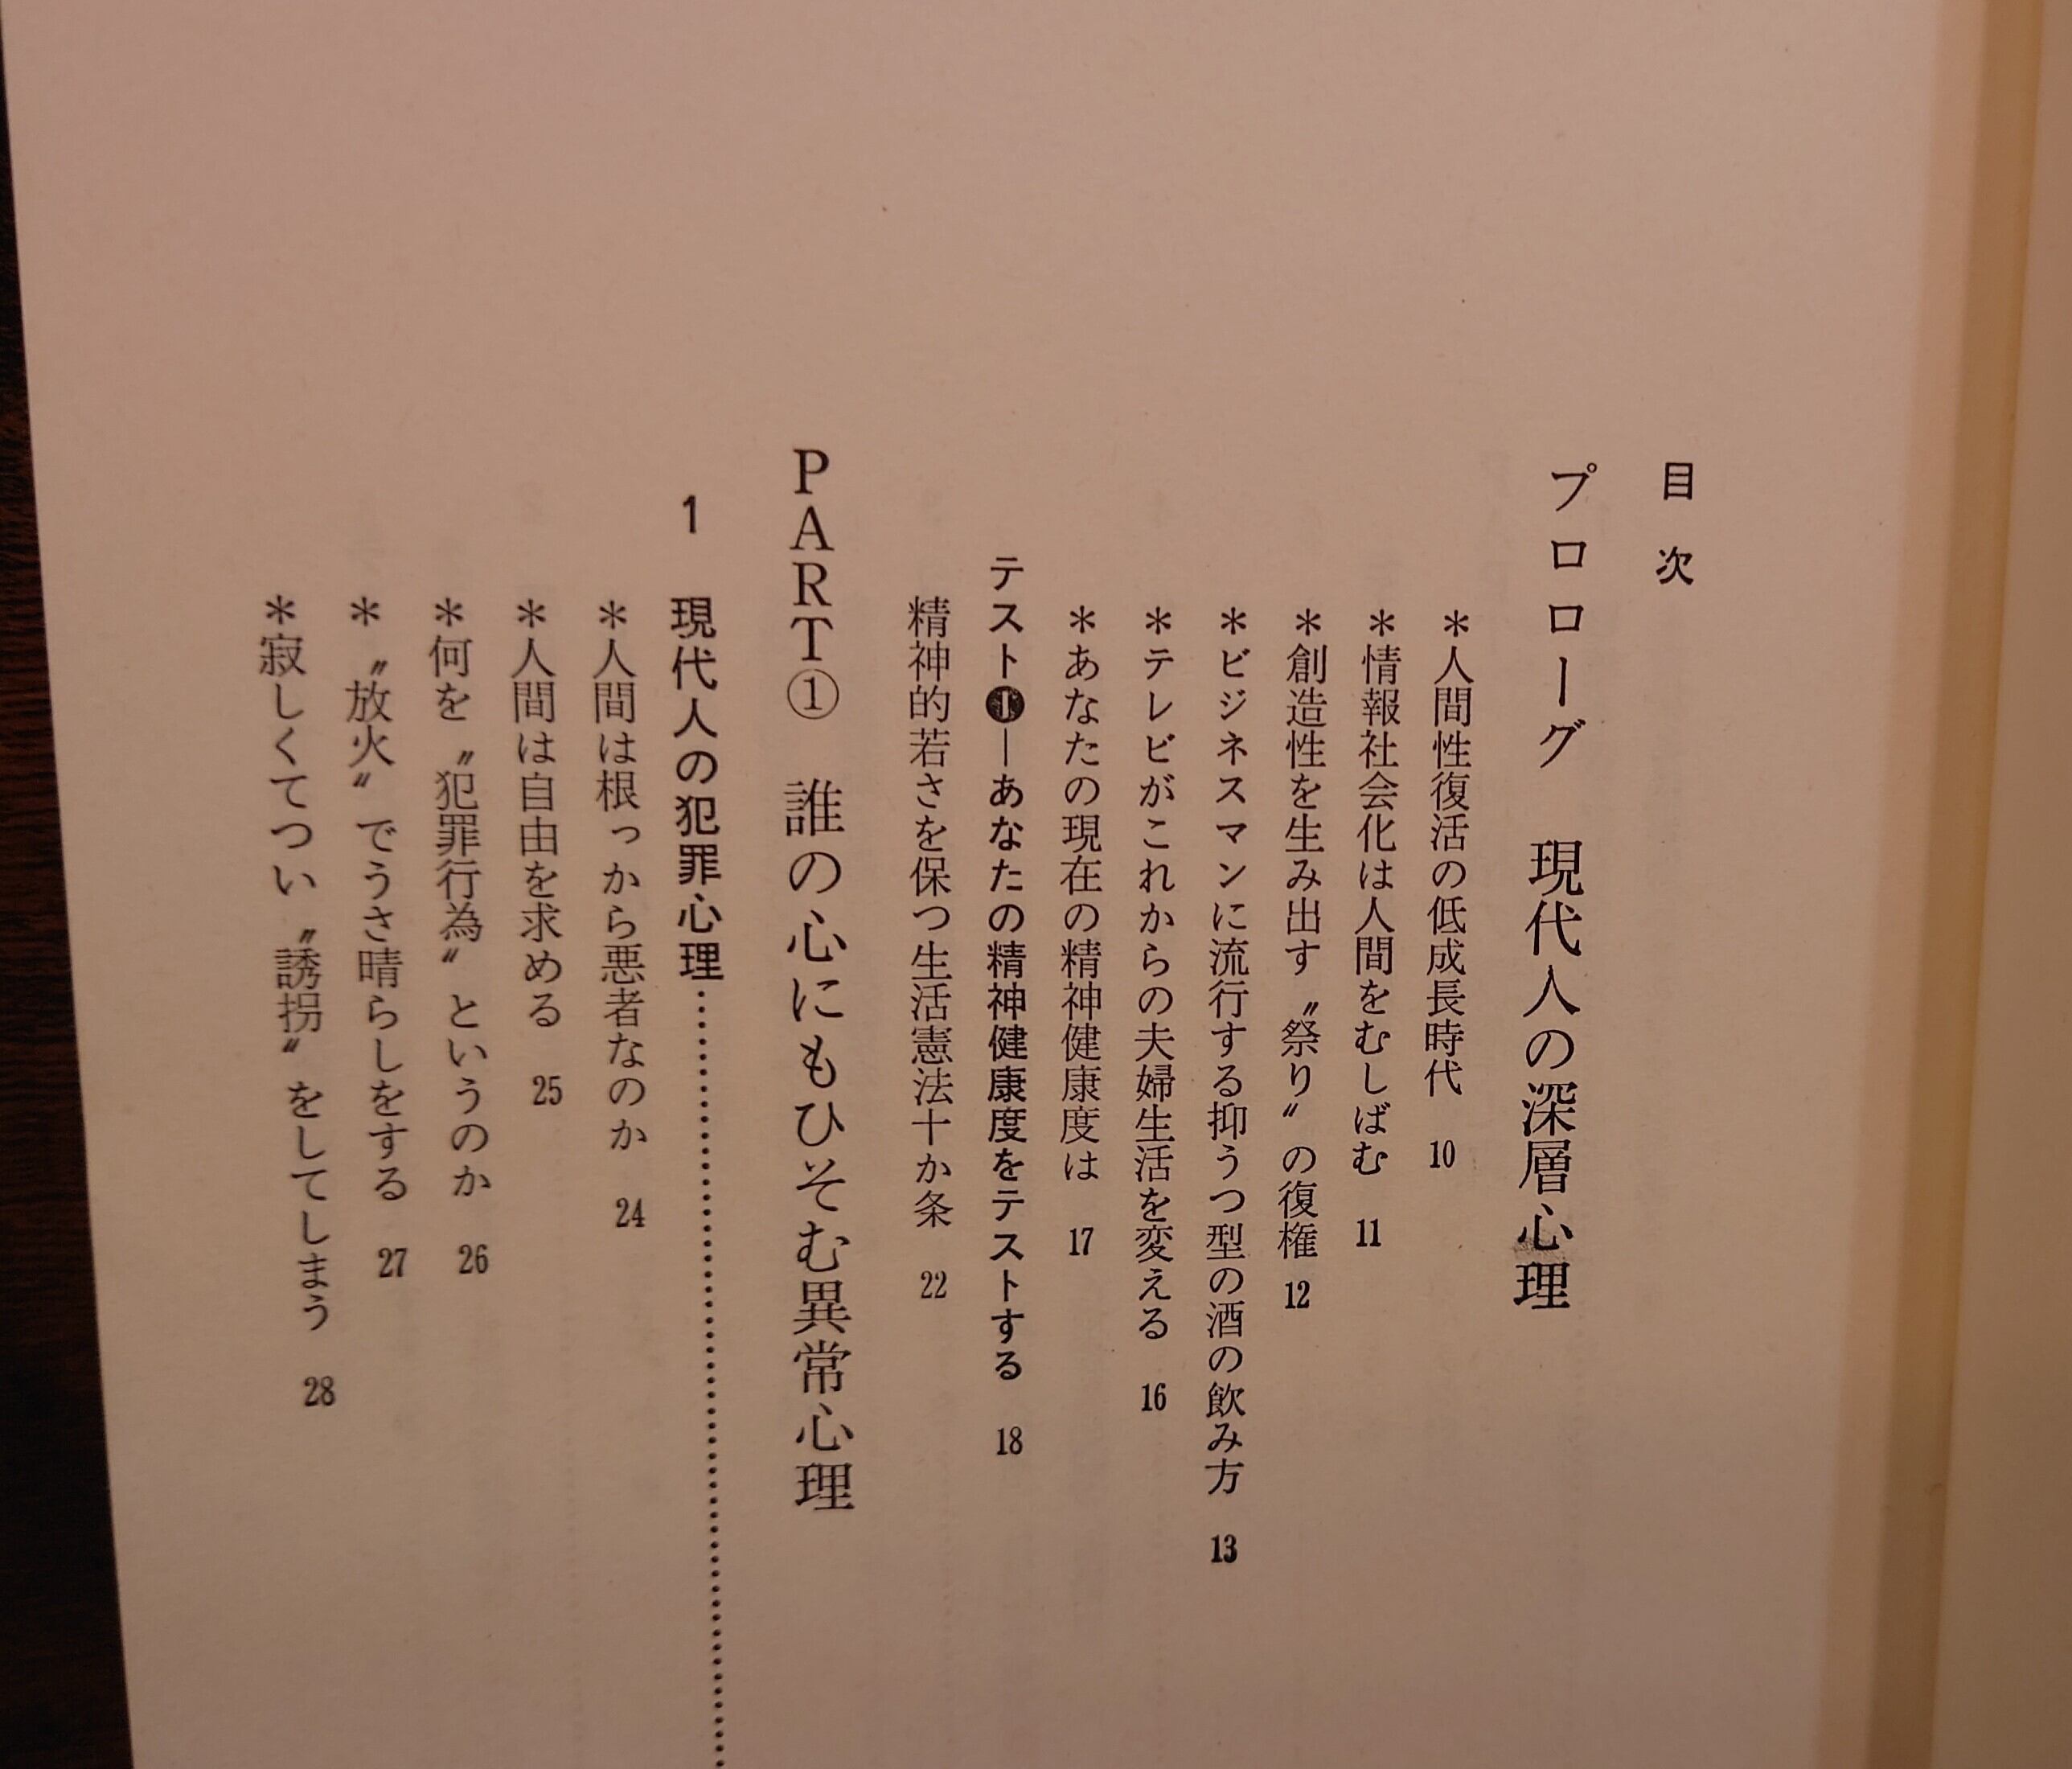 目次
プロローグ　現代人の深層心理
＊人間性復活の低成長時代　10
＊情報社会化は人間をむしばむ　11
＊創造性を生み出す〝祭り〟の復権　12
＊ビジネスマンに流行する抑うつ型の酒の飲み方　13
＊テレビがこれからの夫婦生活を変える　16
＊あなたの現在の精神健康度は　17
テスト❶—あなたの精神健康度をテストする　18
精神的若さを保つ生活憲法十か条　22
PART①　誰の心にもひそむ異常心理
1　現代人の犯罪心理……………………
＊人間は根っから悪者なのか　24
＊人間は自由を求める　25
＊何を〝犯罪行為〟というのか　26
＊〝放火〟でうさ晴らしをする　27
＊寂しくてつい〝誘拐〟をしてしまう　28